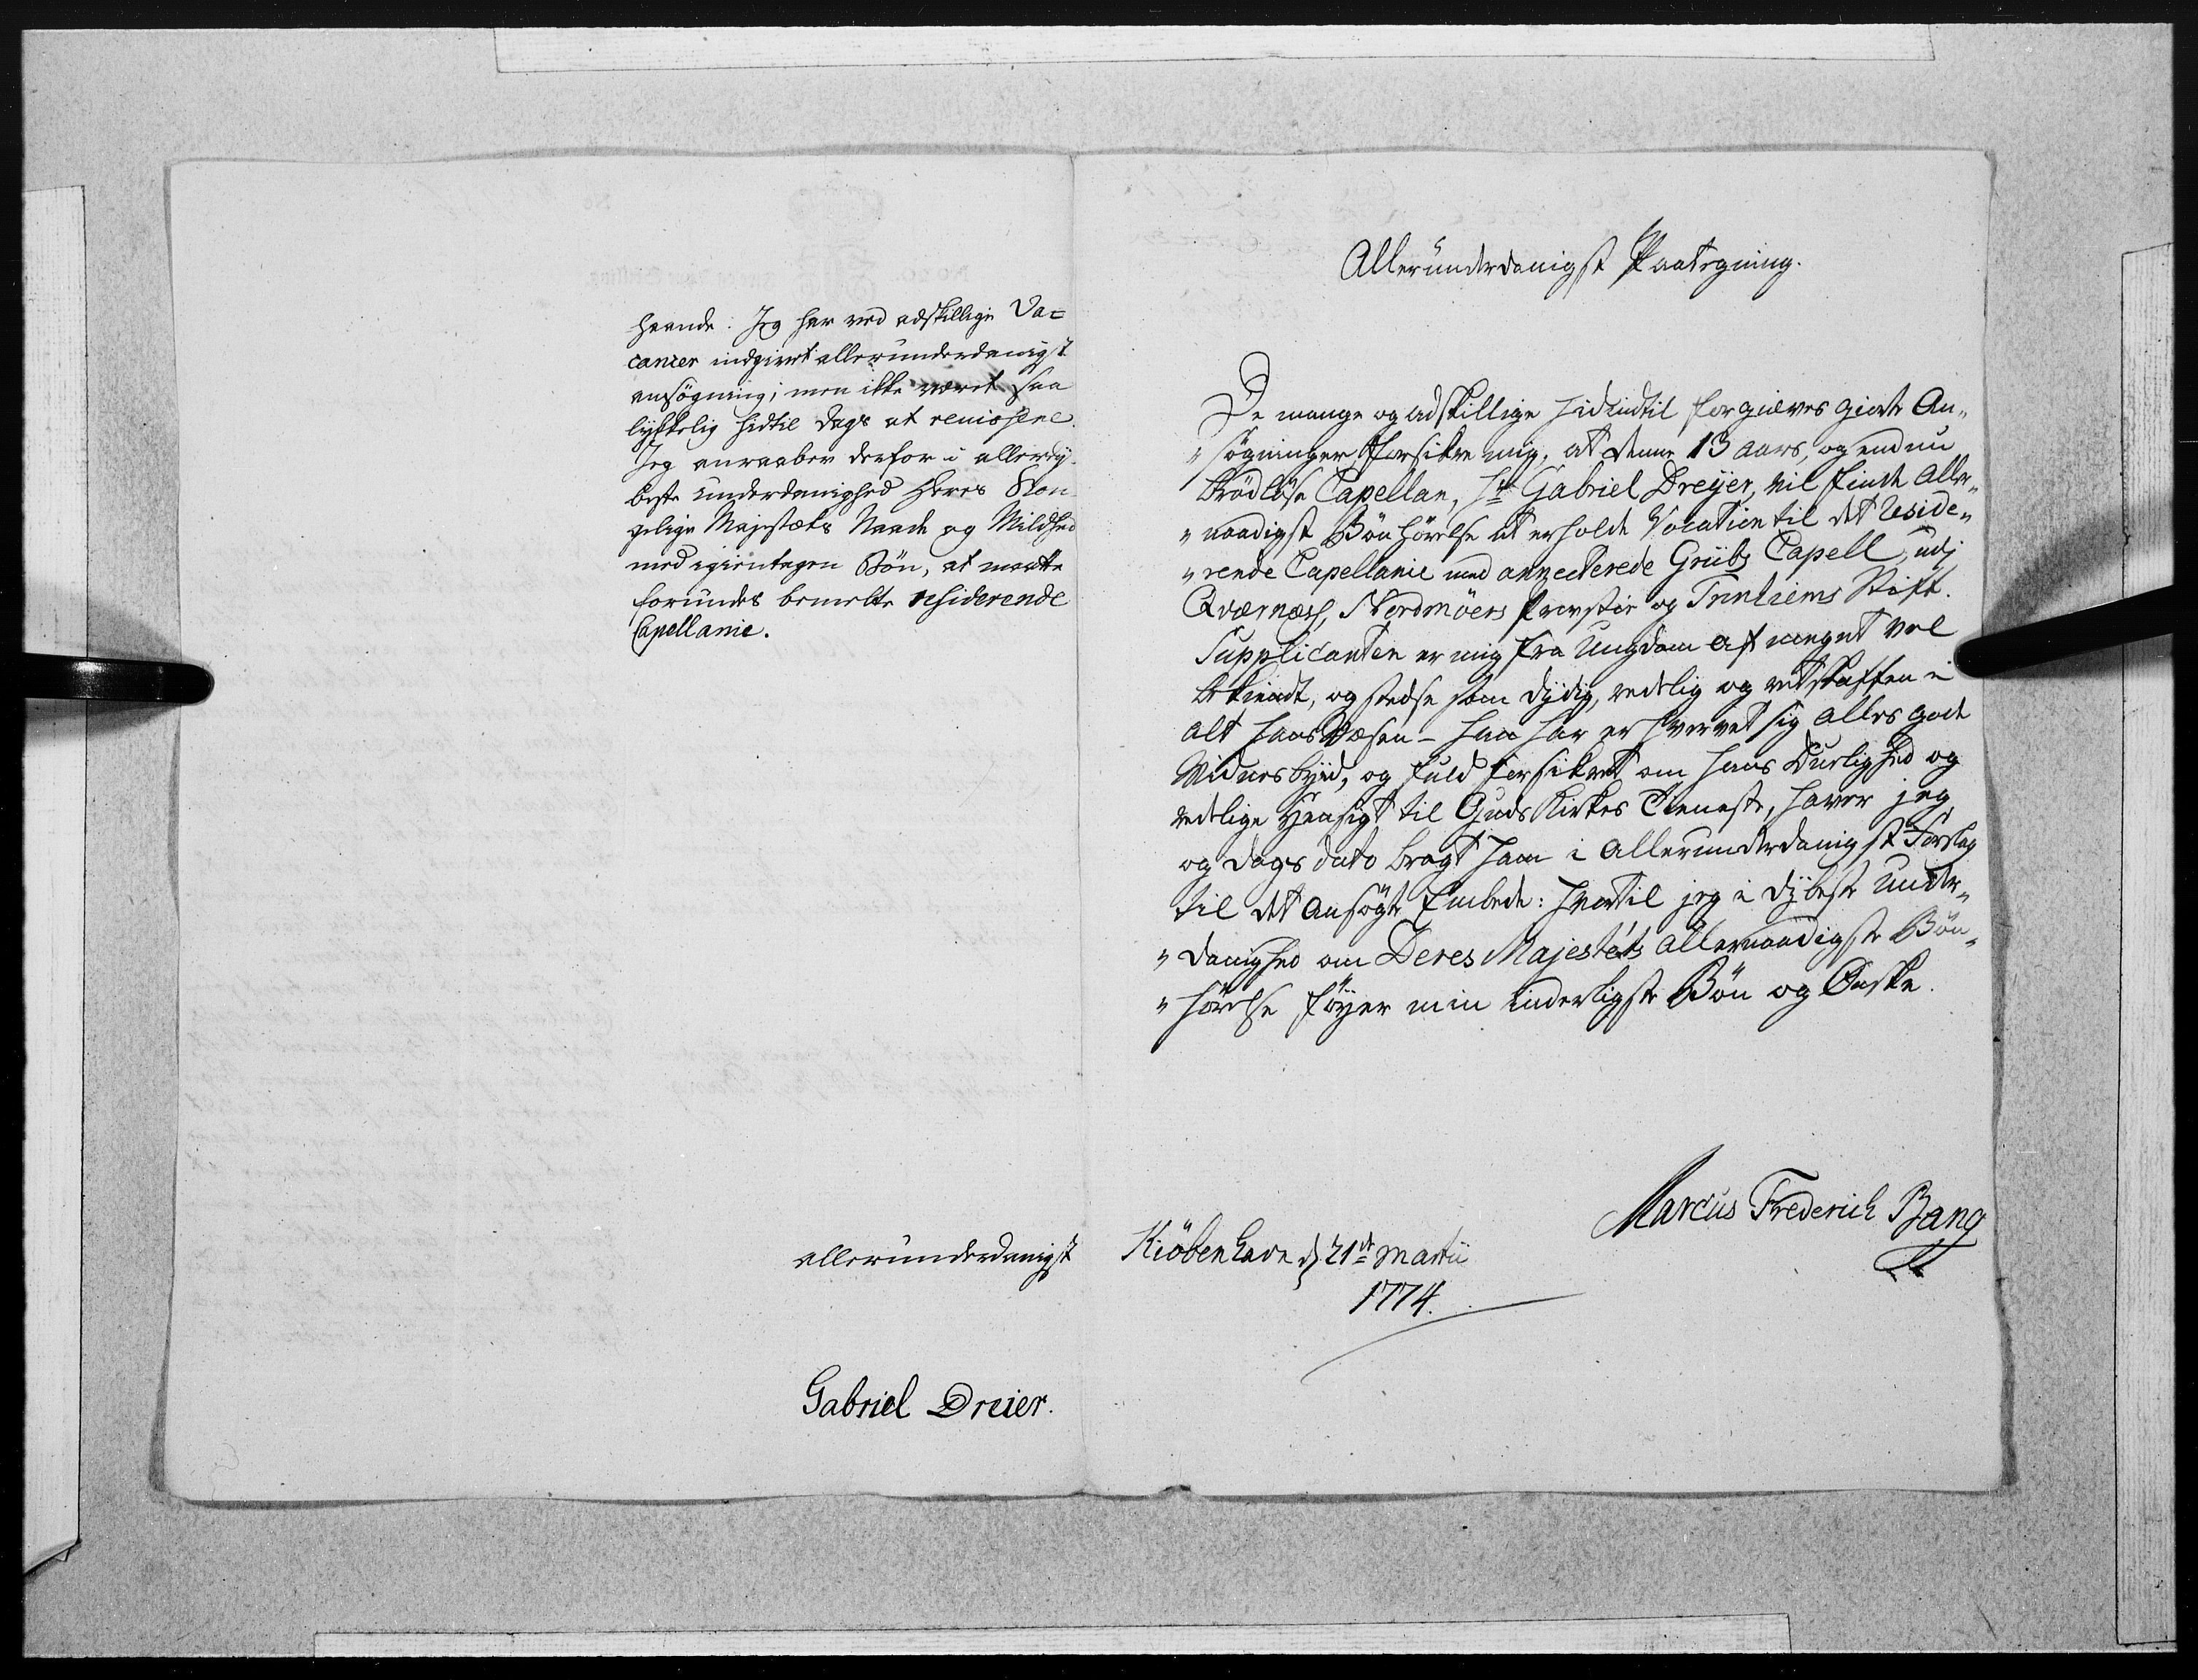 haande. Jeg har ved adskillige Va=
cancer indgivet allerunderdanigst
ansøgning; men ikke været saa
lykkelig hidtil Dags at reussere.
Jeg anraaber derfor i allerdy-
beste underdanighed Deres Kon-
gelige Majestæts Naade og Mildhed
med igientagen Bön, at maatte
forundes bemelte residerende
Capellanie.
allerunderdanigst
Gabriel Dreier.
Alleründerdanigst Paategning.
De mange og adskillige hidindtil forgieves giorte An„
„søgninger forsikre mig, at denne 13 aars, og endnu
brødløse Capellan, Hr Gabriel Dreyer, vil finde Aller„
„naadigst Bönhörelse at erholde Vocation til det Reside„
„rende Capellanie med annecterede Grübs Capell, udj
Qværnæs, Nordmöers Provstie og Trntiems Stift.
Supplicanten er mig fra Ungdom af meget vel
bekiendt, og stedse som dydig, redelig og retskaffen i
alt hans Væsen – han har erhvervet sig alles gode
Vidnesbyrd, og fuld forsikret om hans Duelighed og
redelige Hensigt til Guds Kirkes Tieneste, haver jeg
og Dags dato bragt ham i Allerunderdanigst Forslag
til det ansøgte Embede: hvortil jeg i dybeste Under„
„danighed om Deres Majestéts allernaadigste Bön„
„hörelse föyer min inderligste Bön og Önske.
Kiöbenhavn d 21de Martii
1774.
Marcus Frederich Bang